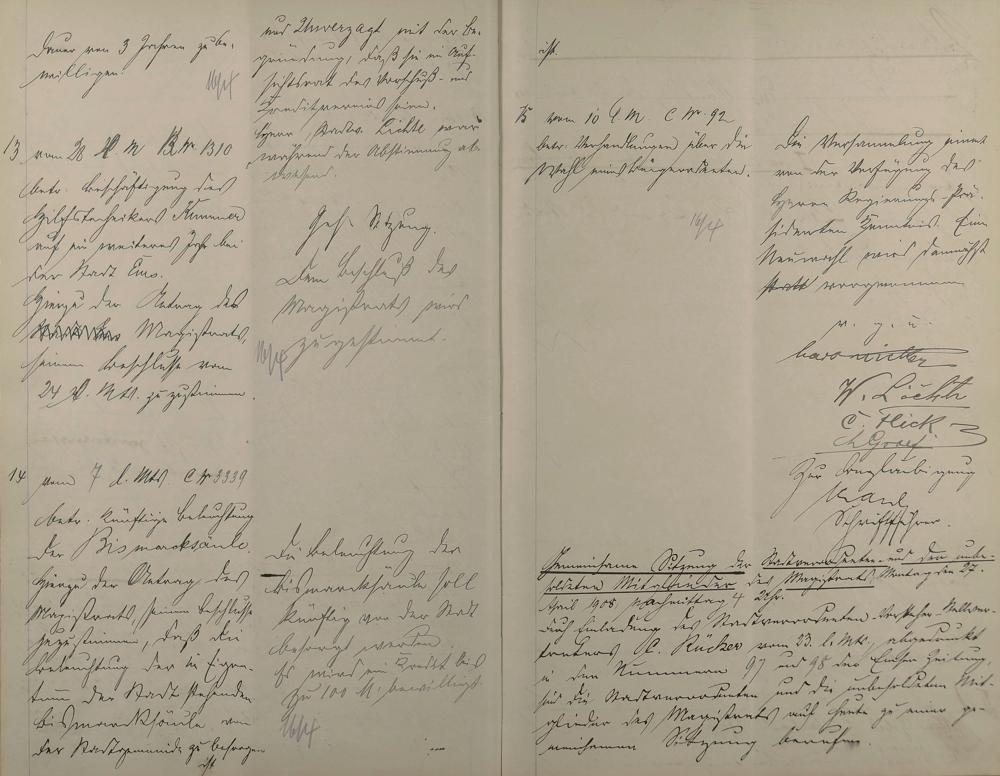 Dauer von 3 Jahren zu be-
willigen.
16/4
13 vom 28 v M B Nr 1310
betr. Beschäftigung des
Hilfstechnikers
auf ein weiteres Jahr bei
der Stadt Ems.
Hierzu der Antrag des
Magistrats,
seinem Beschlusse vom
24 v. Mts. zuzustimmen.
14 vom 7 d. Mts. C Nr 3339
betr. künftige Beleuchtung
der Bismarcksäule.
Hierzu der Antrag des
Magistrats, seinem Beschlusse
zuzustimmen, daß die
Beleuchtung der im Eigen-
tum der Stadt stehenden
Bismarcksäule von
der Stadtgemeinde zu besorgen
ist.
und Unverzagt mit der Be-
gründung, daß sie im Auf-
sichtsrat des Vorschuß- und
Kreditvereins seien.
Herr Stadtv. Lichtl war
während der Abstimmung ab-
wesend.
Geh. Sitzung.
Dem Beschluß des
Magistrats wird
zugestimmt.
16/4
Die Beleuchtung der
Bismarcksäule soll
künftig von der Stadt
besorgt werden.
Es wird ein Kredit bis
zu 100 M. bewilligt.
16/4
ist.
15 vom 10 d. M. C Nr. 92
betr. Verhandlungen über die
Wahl eines Beigeordneten.
16/4
Die Versammlung nimmt
von der Verfügung des
Herrn Regierungs-Prä-
sidenten Kenntnis. Eine
Neuwahl wird demnächst
statt vorgenommen
v. g. u.
C. Flick
Zur Beglaubigung
Schriftführer.
Gemeinsame Sitzung der Stadtverordneten und der unbe-
soldeten Mitglieder des Magistrats Montag den 27.
April 1908, Nachmittag 4 Uhr.
Auf Einladung des Stadtverordneten-Vorsteher-Stellver-
treters C. Rücker vom 23. l. Mts., abgedruckt
in den Nummern 97 und 98 der Emser Zeitung,
sind die Stadtverordneten und die unbesoldeten Mit-
glieder des Magistrats auf heute zu einer ge-
meinsamen Sitzung berufen.